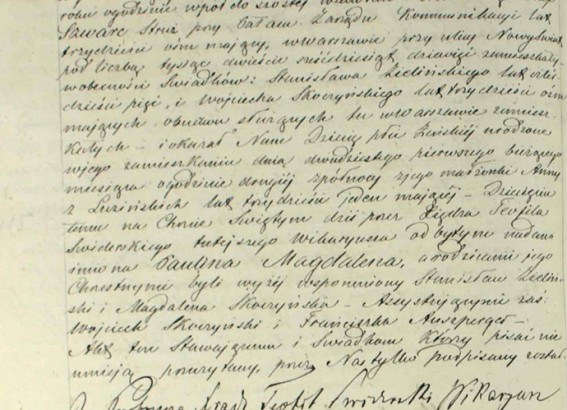 roku ogodzinie wpół do szóstej
Szwarc Stróż przy Zarządu Kommunikacyi lat
trzydzieście ośm mający, wWarszawie przy ulicy Nowyświat
pod liczbą tysiąc dwieście sześćdziesiąt dziewięć zamieszkały
wobecności Świadków: Stanisława Zielińskiego lat czter-
dzieście pięć, i Wojciecha Skoczyńskiego lat trzydzieście ośm
mających obudwu służących tu wWarszawie zamiesz-
kałych – i okazał Nam Dziecię płci Żeńskiéj urodzone
wjego zamieszkaniu dnia dwudziestego pierwszego bieżącego
miesiąca ogodzinie drugiéj zpółnocy zjego małżonki Anny
z lat trzydzieście jeden mającéj – Dziecięciu
temu na Chrzcie Świętym dziś przez Xiędza Teofila
Świderskiego tutejszego Wikaryusza odbytym nadane
imiona Paulina Magdalena, arodzicami jego
Chrzestnymi byli wyżéj wspomniony Stanisław Zieliń-
ski i Magdalena Skoczyńska – Assystującymi zaś:
Wojciech Skoczyński i Franciszka Auszperger –
Akt ten Stawającemu i Świadkom Którzy pisać nie
umieją przeczytany, przez Nas tylko podpisany został.
Xiądz Teofil Świderski Wikaryusz